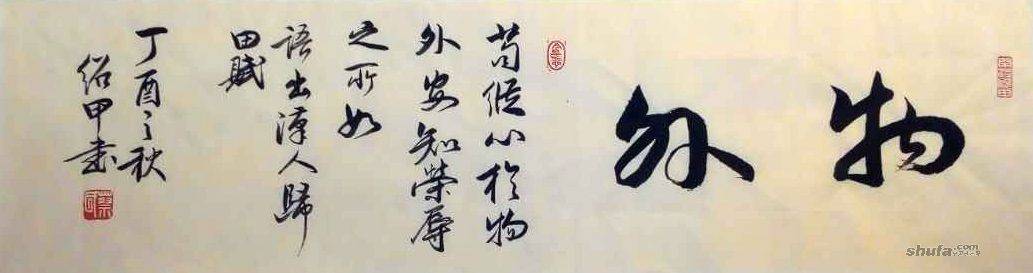 物外
苟縱心於物
外安知榮辱
之所如
語出漢人歸
田賦
丁酉之秋
紹甲書
shufa.com